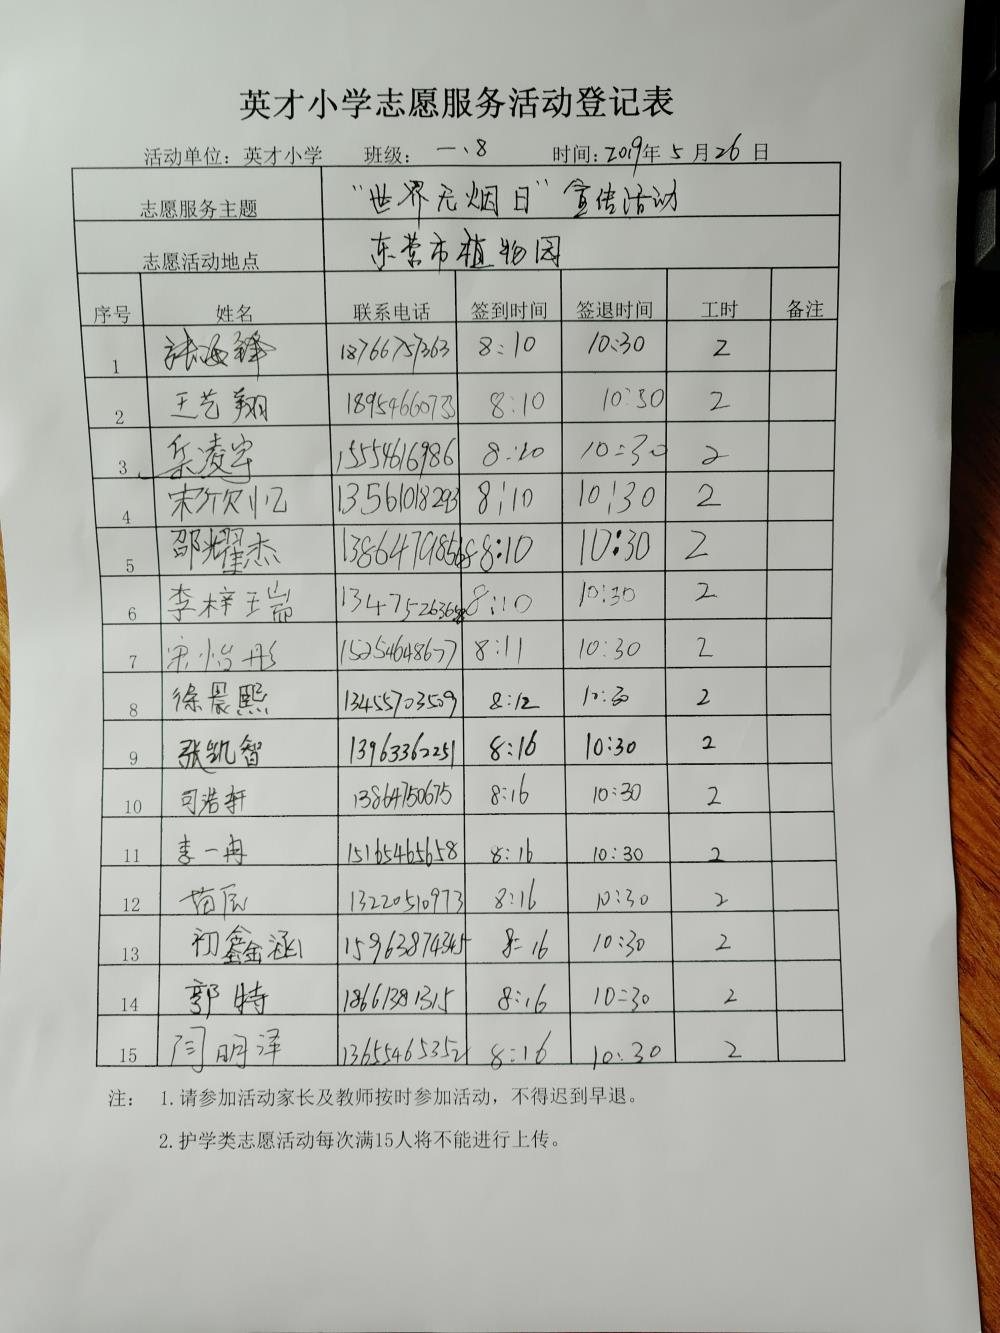 英才小学志愿服务活动登记表
活动单位：英才小学 班级：一、8 时间：2019年5月26日
志愿服务主题 “世界无烟日”宣传活动
志愿活动地点 东营市植物园
序号 姓名 联系电话 签到时间 签退时间 工时 备注
1 张海锋 18766757363 8:10 10:30 2
2 王艺翔 1895466073 8:10 10:30 2
3 凌宇 15554616986 8:10 10:30 2
4 宋欣忆 13561018293 8:10 10:30 2
5 邵耀杰 8:10 10:30 2
6 李梓瑞 8:10 10:30 2
7 宋怡彤 15254648677 8:11 10:30 2
8 徐晨熙 13455703509 8:12 10:30 2
9 张凯智 13963362251 8:16 10:30 2
10 司浩轩 13864750675 8:16 10:30 2
11 李一冉 15165465658 8:16 10:30 2
12 苗辰 13220510973 8:16 10:30 2
13 初鑫涵 15963874345 8:16 10:30 2
14 郭特 18661381315 8:16 10:30 2
15 闫明泽 13655465352 8:16 10:30 2
注： 1.请参加活动家长及教师按时参加活动，不得迟到早退。
2.护学类志愿活动每次满15人将不能进行上传。